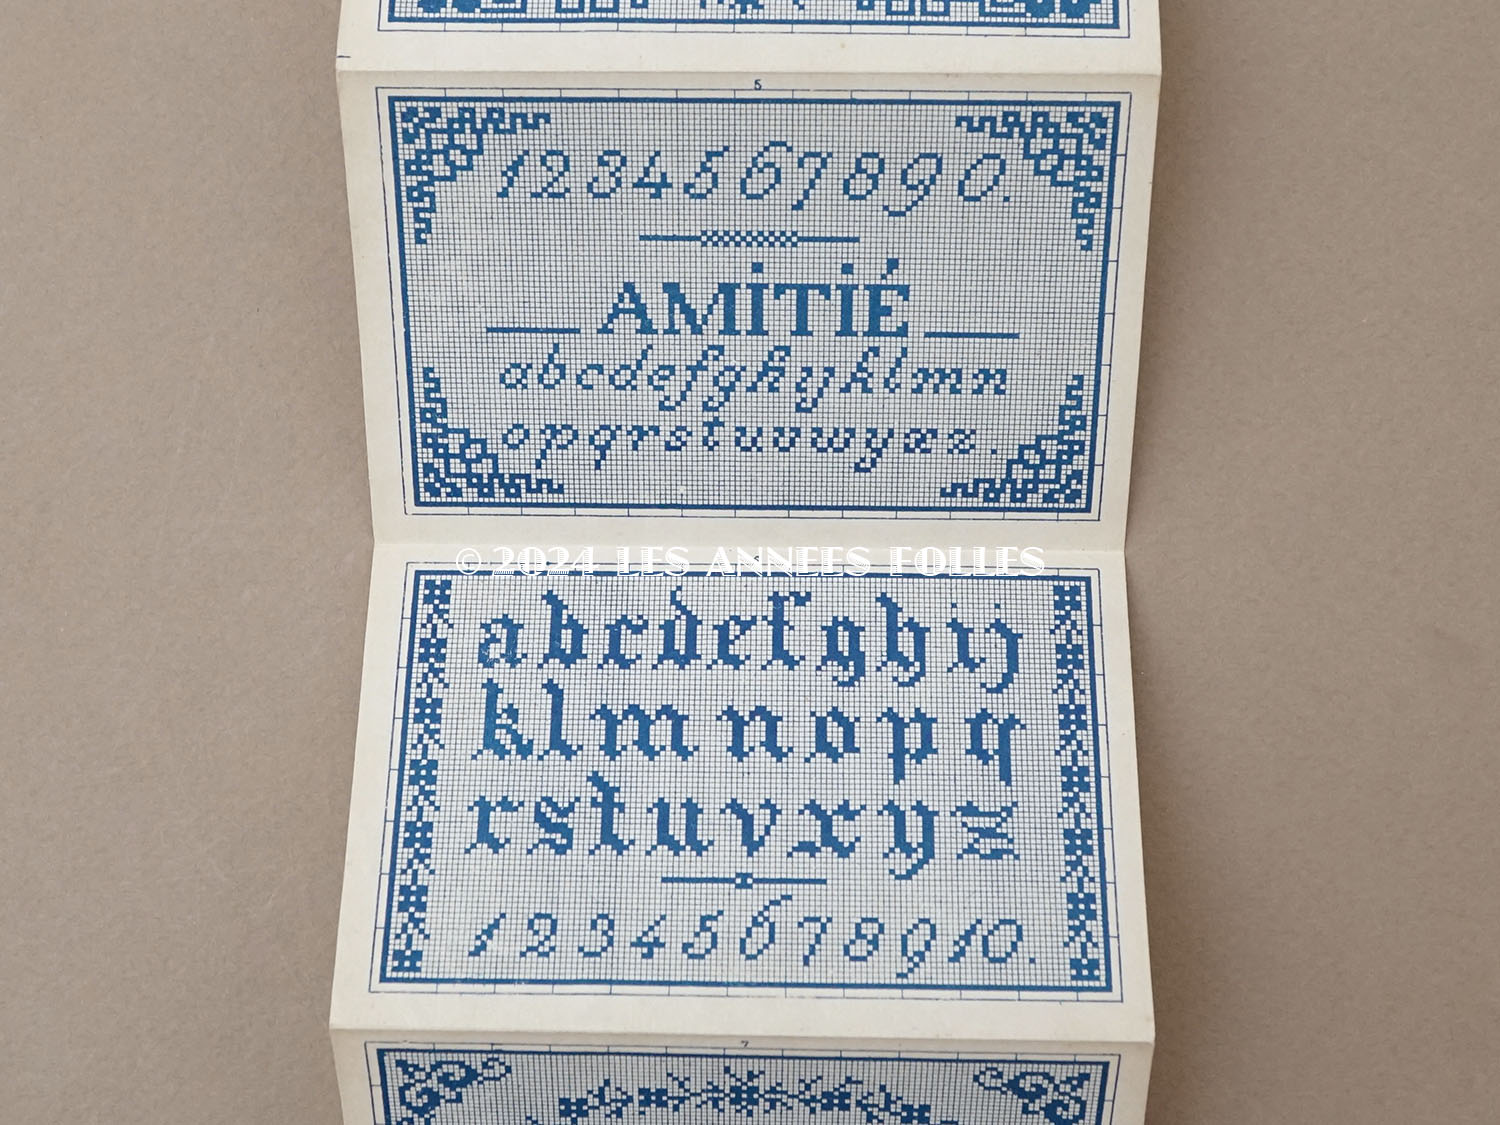 5
1 2 3 4 5 6 7 8 9 0.
AMİTİÉ
a b c d e f g h i j k l m n
o p q r s t u v w y x z .
© 2024 LES ANNEES FOLLES
6
a b c d e f g h i j
k l m n o p q
r s t u v x y z
1 2 3 4 5 6 7 8 9 10.
7